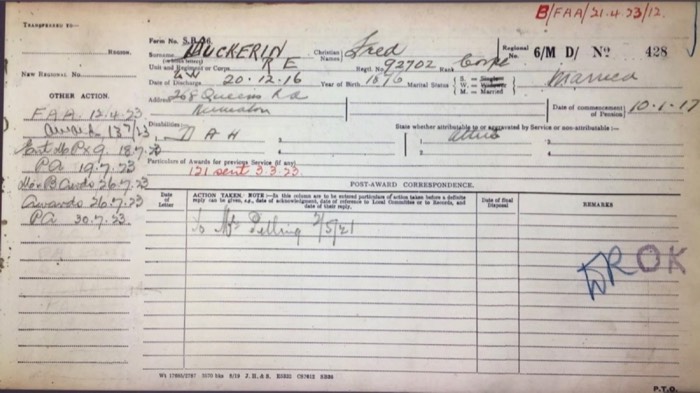 B/FAA/21.4.23/12.
TRANSFERRED TO—
Form No. S.B. 36.
Surname
(in block letters)
Christian Names
Fred
Regional No.
6/M D/ Nº 428
Region.
Unit and Regiment or Corps
R E
Regtl. No. 92702 Rank
New Regional No.
Date of Discharge 20.12.16
Year of Birth 1876
Marital Status
S. = Single
W. = Widower
M. = Married
Married
Address 268 Queens Rd
Nuneaton
Date of commencement of Pension
10.1.17
OTHER ACTION.
FAA. 12.4.23
Disabilities:
1 DAH
State whether attributable to or aggravated by Service or non-attributable:—
2
3
4
Particulars of Awards for previous Service (if any)
121 sent 3.3.23
PA 19.7.23
Awards 26.7.23
PA 30.7.23.
POST-AWARD CORRESPONDENCE.
Date of Letter
ACTION TAKEN. NOTE:—In this column are to be entered particulars of action taken before a definite reply can be given, e.g., date of acknowledgment, date of reference to Local Committee or to Records, and date of their reply.
Date of final Disposal
REMARKS
2/5/21
ROK
P.T.O.